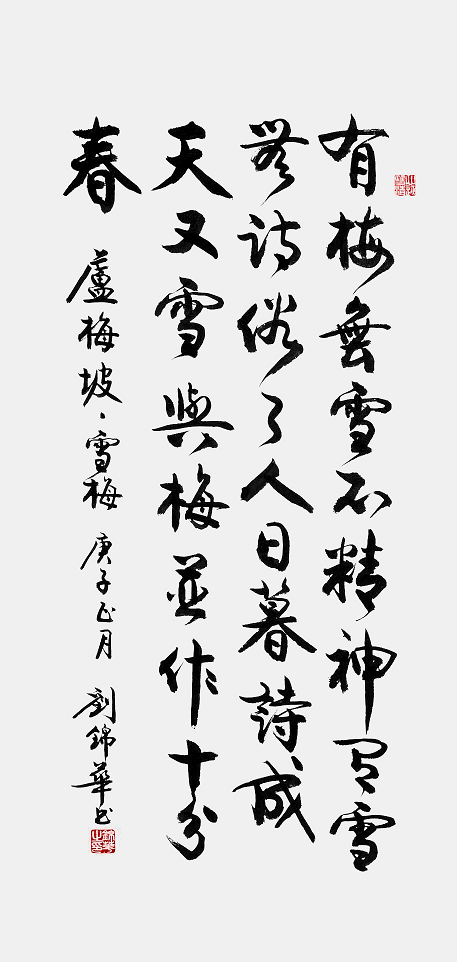 有梅無雪不精神有雪
無詩俗了人日暮詩成
天又雪與梅並作十分
春
蘆梅坡·雪梅 庚子正月 劉錦華书